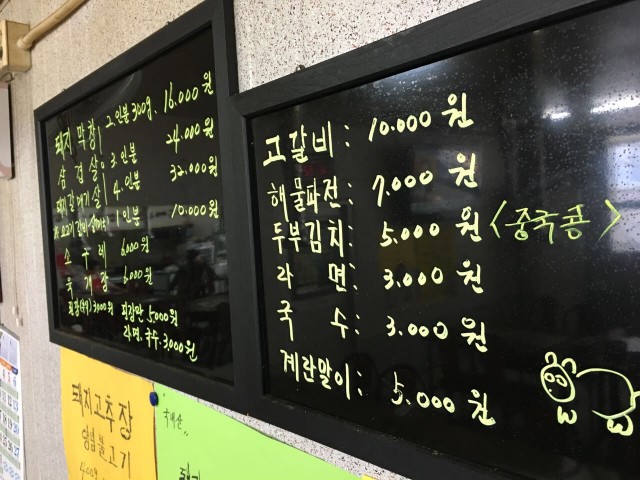 돼지 막창 2.인분 300g. 16.000원
삼겹살 3.인분 24.000원
돼지갈매기살 4.인분 32.000원
1인분 10.000원
소수레 6000원
육개장 6000원
3000원 5.000원
라면. 국수. 3.000원
고갈비: 10.000원
해물파전: 7.000원
두부김치: 5.000원 <중국콩>
라면: 3.000원
국수: 3.000원
계란말이: 5.000원
돼지고추장
양념불고기
400g
국내산